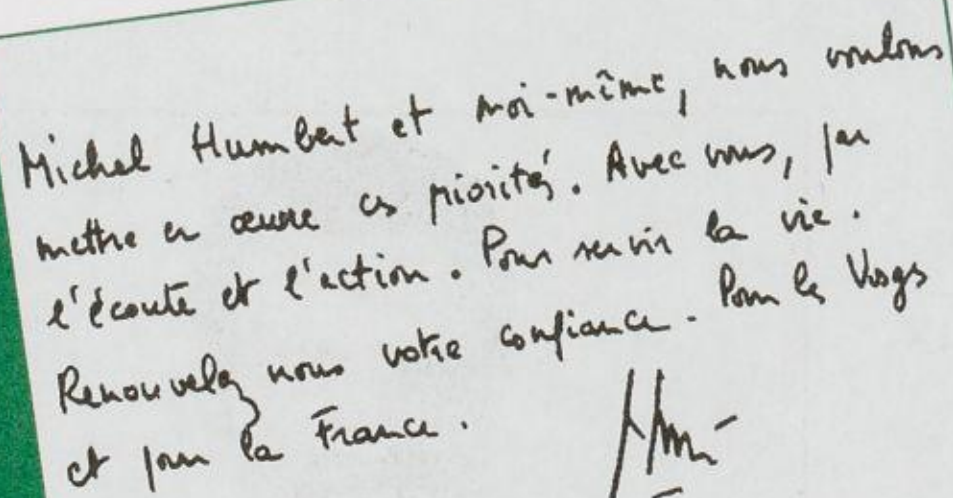 Michel Humbert et moi-même, nous voulons
mettre en œuvre ces priorités. Avec vous, par
l'écoute et l'action. Pour servir la vie.
Renouvelez nous votre confiance. Pour les Vosges
et pour la France.